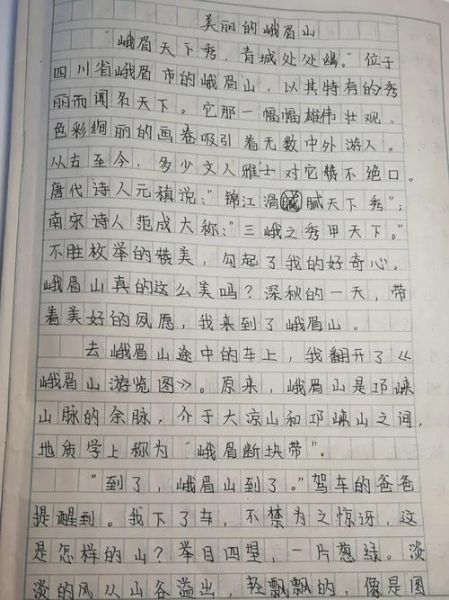 美丽的峨眉山
"峨眉天下秀，青城处处幽。"位于
四川省峨眉市的峨眉山，以其特有的秀
丽而闻名天下。它那一幅幅雄伟壮观、
色彩绚丽的画卷吸引着无数中外游人。
从古至今，多少文人雅士对它赞不绝口。
唐代诗人元稹说："锦江滑腻天下秀"；
南宋诗人范成大称："三峨之秀甲天下。"
不胜枚举的赞美，勾起了我的好奇心。
峨眉山真的这么美吗？深秋的一天，带
着美好的夙愿，我来到了峨眉山。
去峨眉山途中的车上，我翻开了《
峨眉山游览图》。原来，峨眉山是邛崃
山脉的余脉，介于大凉山和邛崃山之间，
地质学上称为"峨眉断块带"。
"到了，峨眉山到了。"驾车的爸爸
提醒到。我下了车，不禁为之惊讶，这
是怎样的山？举目四望，一片葱绿。淡
淡的风从山谷溢出，轻飘飘的，像是